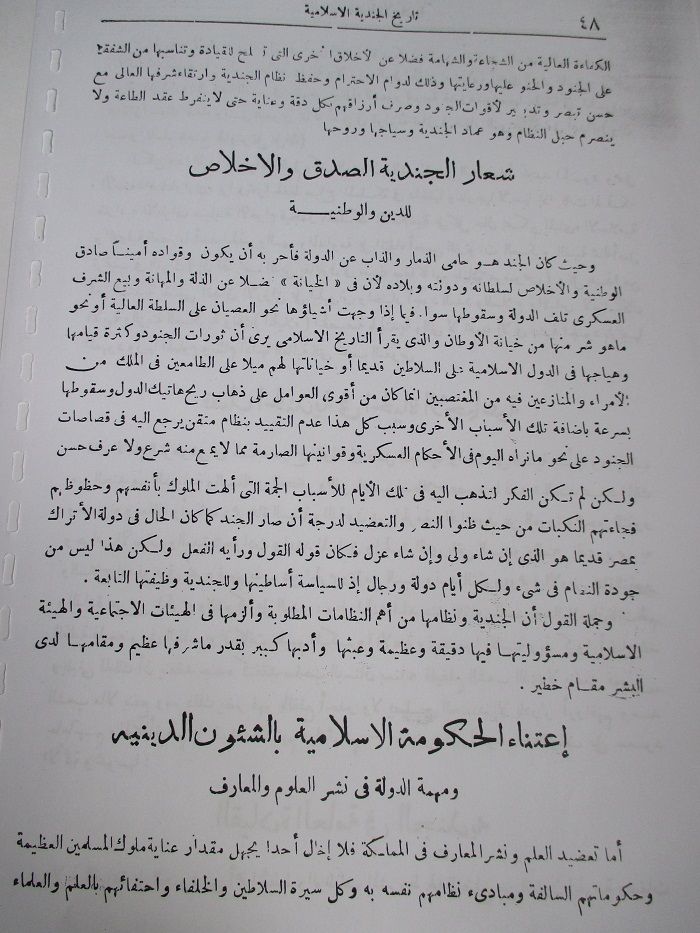 ٤٨
تاريخ الجندية الاسلامية
الكفاءة العالية من الشجاعة والشهامة فضلا عن الأخلاق الأخرى التى تلمح للقيادة وتناسبها من الشفقة
على الجنود والحنو عليها ورعايتها وذلك لدوام الاحترام وحفظ نظام الجندية وارتقاء شرفها العالى مع
حسن تبصر وتدبير لأقوات الجنود وصرف أرزاقهم بكل دقة وعناية حتى لا ينفرط عقد الطاعة ولا
ينصرم حبل النظام وهو عماد الجندية وسياجها وروحها
شعار الجندية الصدق والاخلاص
للدين والوطنية
وحيث كان الجند هو حامى الذمار والذاب عن الدولة فأحر به أن يكون وقواده أمينا صادق
الوطنية والأخلاص لسلطانه ودولته وبلاده لأن فى « الخيانة » فضلا عن الذلة والمهانة وبيع الشرف
العسكرى تلف الدولة وسقوطها سوا. فيما إذا وجهت أشياؤها نحو العصيان على السلطة العالية أو نحو
ماهو شر منها من خيانة الأوطان والذى يقرأ التاريخ الاسلامى يرى أن ثورات الجنود وكثرة قيامها
وهياجها فى الدول الاسلامية على السلاطين قديما أو خياناتها لهم ميلا على الطامعين فى الملك من
الأمراء والمنازعين فيه من المغتصبين انما كان من أقوى العوامل على ذهاب ريح هاتيك الدول وسقوطها
بسرعة باضافة تلك الأسباب الأخرى وسبب كل هذا عدم التقييد بنظام متقن يرجع اليه فى قصاصات
الجنود على نحو مانراه اليوم فى الأحكام العسكرية وقوانينها الصارمة مما لا يمنع منه شرع ولا عرف حسن
ولكن لم تكن الفكر لتذهب اليه فى تلك الأيام للأسباب الجمة التى ألهت الملوك بأنفسهم وحظوظهم
فجاءتهم النكبات من حيث ظنوا النصر والتعضيد لدرجة أن صار الجند كما كان الحال فى دولة الأتراك
بمصر قديما هو الذى إن شاء ولى وإن شاء عزل فكان قوله القول ورأيه الفعل ولكن هذا ليس من
جودة النظام فى شىء ولكل أيام دولة ورجال إذ للسياسة أساطينها وللجندية وظيفتها التابعة .
وجملة القول أن الجندية ونظامها من أهم النظامات المطلوبة وألزمها فى الهيئات الاجتماعية والهيئة
الاسلامية ومسؤوليتها فيها دقيقة وعظيمة وعبئها وأدبها كبير بقدر ماشرفها عظيم ومقامها لدى
البشر مقام خطير .
إعتناء الحكومة الاسلامية بالشئون الدينيه
ومهمة الدولة فى نشر العلوم والمعارف
أما تعضيد العلم ونشر المعارف فى المملكة فلا إخال أحدا يجهل مقدار عناية ملوك المسلمين العظيمة
وحكوماتهم السالفة ومبادىء نظامهم نفسه به وكل سيرة السلاطين والخلفاء واحتفائهم بالعلم والعلماء